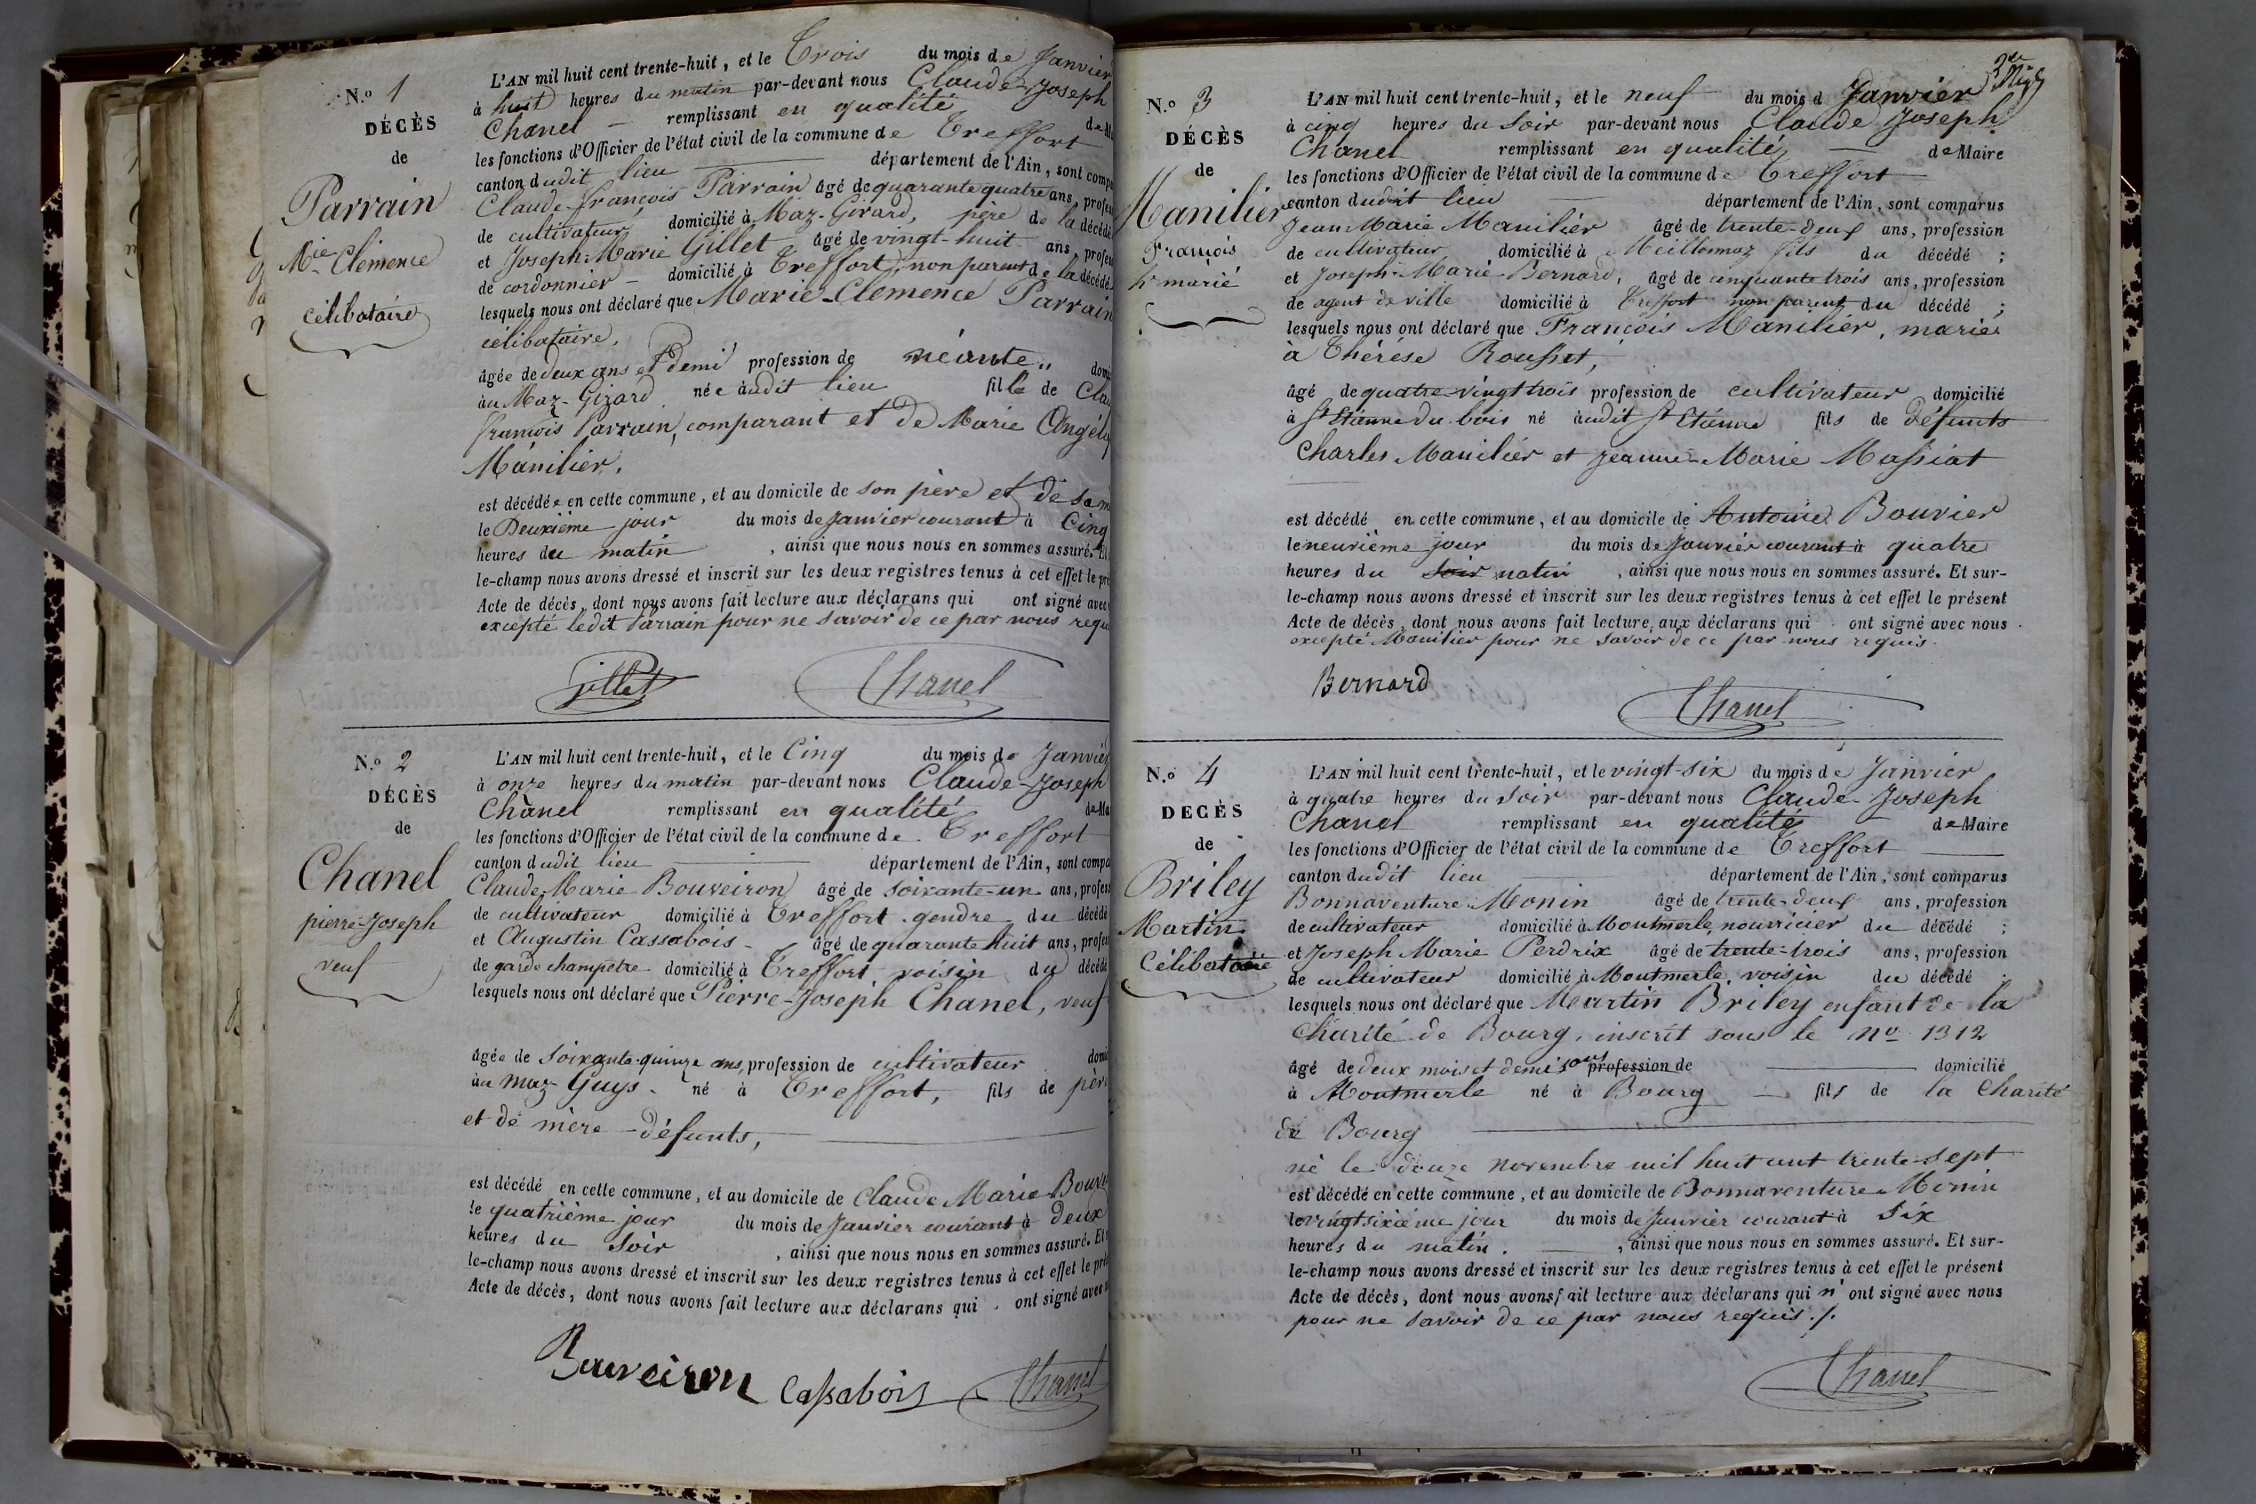 N.o 1
DÉCÈS
de
Parrain
Mie Clémence
célibataire
L'AN mil huit cent trente-huit, et le Trois du mois de Janvier
à huit heures du matin par-devant nous Claude-Joseph
Chanel remplissant en qualité de
les fonctions d'Officier de l'état civil de la commune de Treffort
canton dudit lieu département de l'Ain, sont
Claude-françois Parrain âgé de quarante quatre ans,
de cultivateur, domicilié à Maz-Girard, père de la décédé
et Joseph-Marie Gillet âgé de vingt-huit ans,
de cordonnier domicilié à Treffort, non parent de la décédé
lesquels nous ont déclaré que Marie-Clémence Parrain
célibataire,
âgée de deux ans et demi profession de néante
au Maz-Girard née àudit lieu fille de
françois Parrain, comparant et de Marie
Manilier.
est décédée en cette commune, et au domicile de son père et de sa
le Deuxième jour du mois de Janvier courant à Cinq
heures du matin, ainsi que nous nous en sommes assuré. Et
le-champ nous avons dressé et inscrit sur les deux registres tenus à cet effet le
Acte de décès, dont nous avons fait lecture aux déclarans qui ont signé avec
excepté ledit Parrain pour ne savoir de ce par nous
Gillet Chanel
N.o 2
DÉCÈS
de
Chanel
pierre-Joseph
veuf
L'AN mil huit cent trente-huit, et le Cinq du mois de Janvier
à onze heures du matin par-devant nous Claude-Joseph
Chanel remplissant en qualité de
les fonctions d'Officier de l'état civil de la commune de Treffort
canton dudit lieu département de l'Ain, sont
Claude-Marie Bouveiron âgé de soixante-un ans,
de cultivateur domicilié à Treffort gendre du décédé
et Augustin Cassabois âgé de quarante huit ans,
de garde champêtre domicilié à Treffort voisin du décédé
lesquels nous ont déclaré que Pierre-Joseph Chanel, veuf
âgée de soixante-quinze ans, profession de cultivateur
au Maz-Guys né à Treffort, fils de père
et de mère défunts,
est décédé en cette commune, et au domicile de Claude Marie
le quatrième jour du mois de Janvier courant à deux
heures du soir, ainsi que nous nous en sommes assuré. Et
le-champ nous avons dressé et inscrit sur les deux registres tenus à cet effet le
Acte de décès, dont nous avons fait lecture aux déclarans qui ont signé avec
Bouveiron Cassabois Chanel
N.o 3
DÉCÈS
de
Manilier
François
marié
L'AN mil huit cent trente-huit, et le neuf du mois d Janvier
à cinq heures du soir par-devant nous Claude Joseph
Chanel remplissant en qualité de Maire
les fonctions d'Officier de l'état civil de la commune de Treffort
canton dudit lieu département de l'Ain, sont comparus
Jean Marie Manilier âgé de trente-deux ans, profession
de cultivateur domicilié à Meillonnaz fils du décédé ;
et Joseph-Marie Bernard, âgé de cinquante trois ans, profession
de agent de ville domicilié à Treffort non parent du décédé ;
lesquels nous ont déclaré que François Manilier, marié
à Thérèse Rousset,
âgé de quatre-vingt trois profession de cultivateur domicilié
à St Etienne du bois né àudit St Etienne fils de défunts
Charles Manilier et Jeanne-Marie Massiat
est décédé en cette commune, et au domicile de Antoine Bouvier
le neuvième jour du mois de Janvier courant à quatre
heures du soir matin, ainsi que nous nous en sommes assuré. Et sur-
le-champ nous avons dressé et inscrit sur les deux registres tenus à cet effet le présent
Acte de décès, dont nous avons fait lecture aux déclarans qui ont signé avec nous
excepté Manilier pour ne savoir de ce par nous requis.
Bernard
Chanel
N.o 4
DECÈS
de
Briley
Martin
Célibataire
L'AN mil huit cent trente-huit, et le vingt-six du mois de Janvier
à quatre heures du soir par-devant nous Claude-Joseph
Chanel remplissant en qualité de Maire
les fonctions d'Officier de l'état civil de la commune de Treffort
canton dudit lieu département de l'Ain, sont comparus
Bonnaventure Monin âgé de trente-deux ans, profession
de cultivateur domicilié à Montmerle, nourricier du décédé ;
et Joseph Marie Perdrix âgé de trente-trois ans, profession
de cultivateur domicilié à Montmerle, voisin du décédé ;
lesquels nous ont déclaré que Martin Briley enfant de la
charité de Bourg, inscrit sous le No 1312
âgé de deux mois et demi sans profession de domicilié
à Montmerle né à Bourg fils de la Charité
de Bourg
né le douze novembre mil huit cent trente-sept
est décédé en cette commune, et au domicile de Bonnaventure Monin
le vingt sixième jour du mois de Janvier courant à Six
heures du matin., ainsi que nous nous en sommes assuré. Et sur-
le-champ nous avons dressé et inscrit sur les deux registres tenus à cet effet le présent
Acte de décès, dont nous avons fait lecture aux déclarans qui n'ont signé avec nous
pour ne savoir de ce par nous requis./.
Chanel